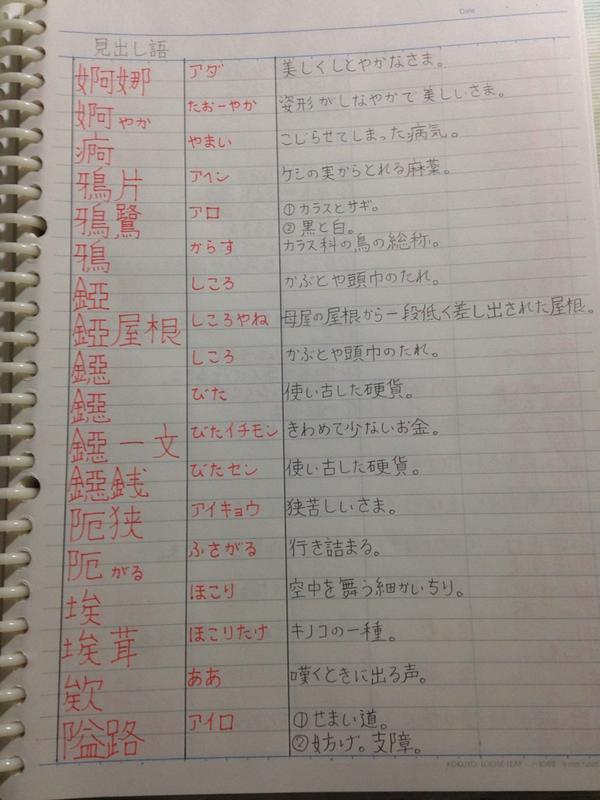 Date
見出し語
婀娜 アダ 美しくしとやかなさま。
婀やか たおーやか 姿形がしなやかで美しいさま。
痾 やまい こじらせてしまった病気。
鴉片 アヘン ケシの実からとれる麻薬。
鴉鷺 アロ ①カラスとサギ。
②黒と白。
鴉 からす カラス科の鳥の総称。
錏 しころ かぶとや頭巾のたれ。
錏屋根 しころやね 母屋の屋根から一段低く差し出された屋根。
鐚 しころ かぶとや頭巾のたれ。
鐚 びた 使い古した硬貨。
鐚一文 びたイチモン きわめて少ないお金。
鐚銭 びたセン 使い古した硬貨。
阨狭 アイキョウ 狭苦しいさま。
阨がる ふさがる 行き詰まる。
埃 ほこり 空中を舞う細かいちり。
埃茸 ほこりたけ キノコの一種。
欸 ああ 嘆くときに出る声。
隘路 アイロ ①せまい道。
②妨げ。支障。
KOKUYO LOOSE-LEAF